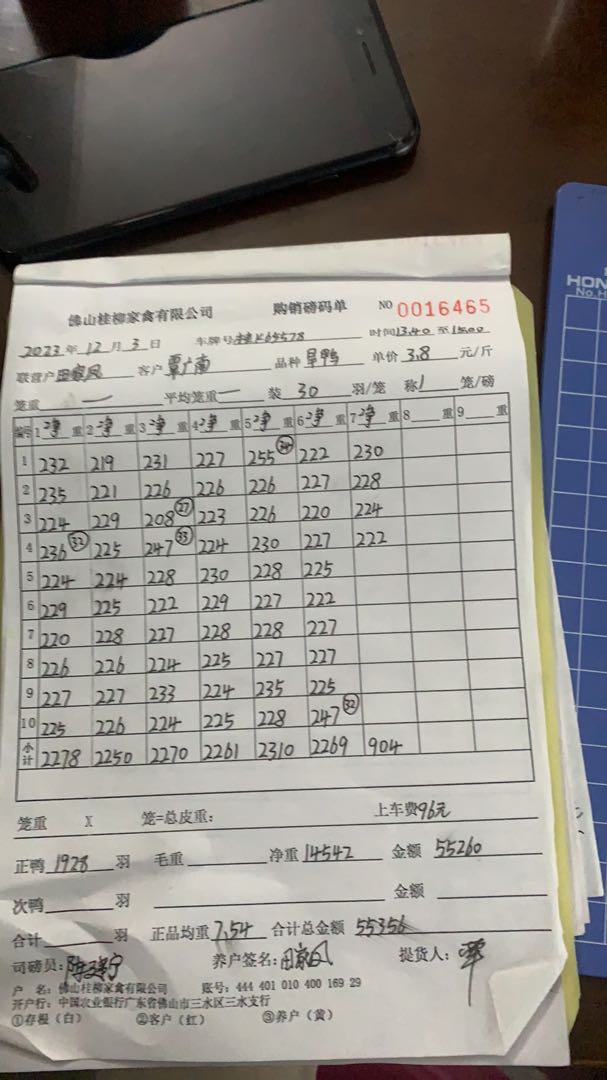 HON
No.H
佛山桂柳家禽有限公司 购销磅码单 NO 0016465
2023年12月3日 车牌号 时间13.40至1500
联营户田家风 客户覃广南 品种旱鸭 单价3.8元/斤
笼重 一 平均笼重 一 装30羽/笼 称1笼/磅
编号 1净重 2净重 3净重 4净重 5净重 6净重 7净重 8重 9重
1 232 219 231 227 255 34 222 230
2 235 221 226 226 226 227 228
3 224 229 208 27 223 226 220 224
4 236 32 225 247 33 224 230 227 222
5 224 224 228 230 228 225
6 229 225 222 229 227 222
7 220 228 227 228 228 227
8 226 226 224 225 227 227
9 227 227 233 224 235 225
10 225 226 224 225 228 247 32
小计 2278 2250 2270 2261 2310 2269 904
笼重 X 笼=总皮重: 上车费96元
正鸭1928羽 毛重 净重14542 金额55260
次鸭 羽 金额
合计 羽 正品均重7.54 合计总金额55356
司磅员: 养户签名:田家风 提货人:覃
户 名:佛山桂柳家禽有限公司 账号:444 401 010 400 169 29
开户行:中国农业银行广东省佛山市三水区三水支行
①存根(白) ②客户(红) ③养户(黄)